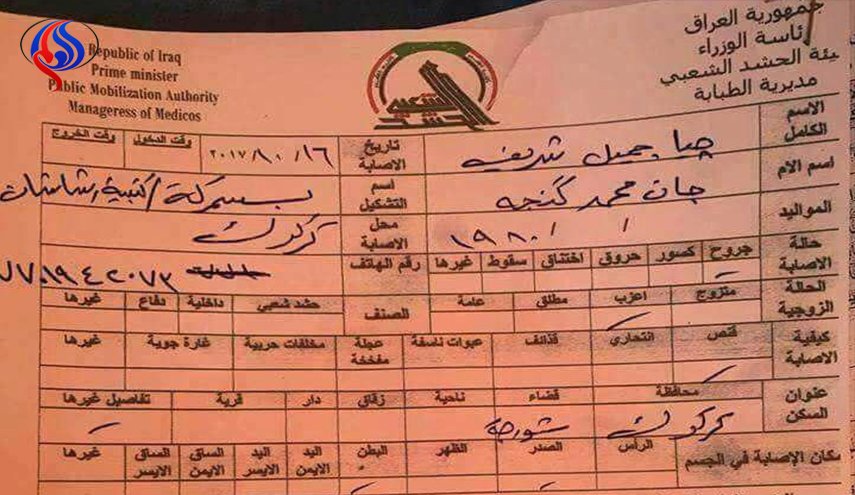 جمهورية العراق
رئاسة الوزراء
هيئة الحشد الشعبي
مديرية الطبابة
Republic of Iraq
Prime minister
Public Mobilization Authority
Manageress of Medicos
الحشد الشعبي
الاسم الكامل جيا جميل شريف تاريخ الاصابة ٢٠١٧/١٠/١٦ وقت الدخول وقت الخروج
اسم الام جان محمد اسم التشكيل
المواليد / / ١٩٨٠ محل الاصابة كركوك
حالة الاصابة جروح كسور حروق اختناق سقوط غيرها رقم الهاتف
الحالة الزوجية متزوج اعزب مطلق عامة الصنف حشد شعبي داخلية دفاع غيرها
كيفية الاصابة قنص انتحاري قذائف عبوات ناسفة عجلة مفخخة مخلفات حربية غارة جوية غيرها
عنوان السكن محافظة قضاء ناحية زقاق دار قرية تفاصيل غيرها
كركوك شورجة
مكان الإصابة في الجسم الرأس الصدر الظهر البطن اليد الايمن اليد الايسر الساق الايمن الساق الايسر غيرها